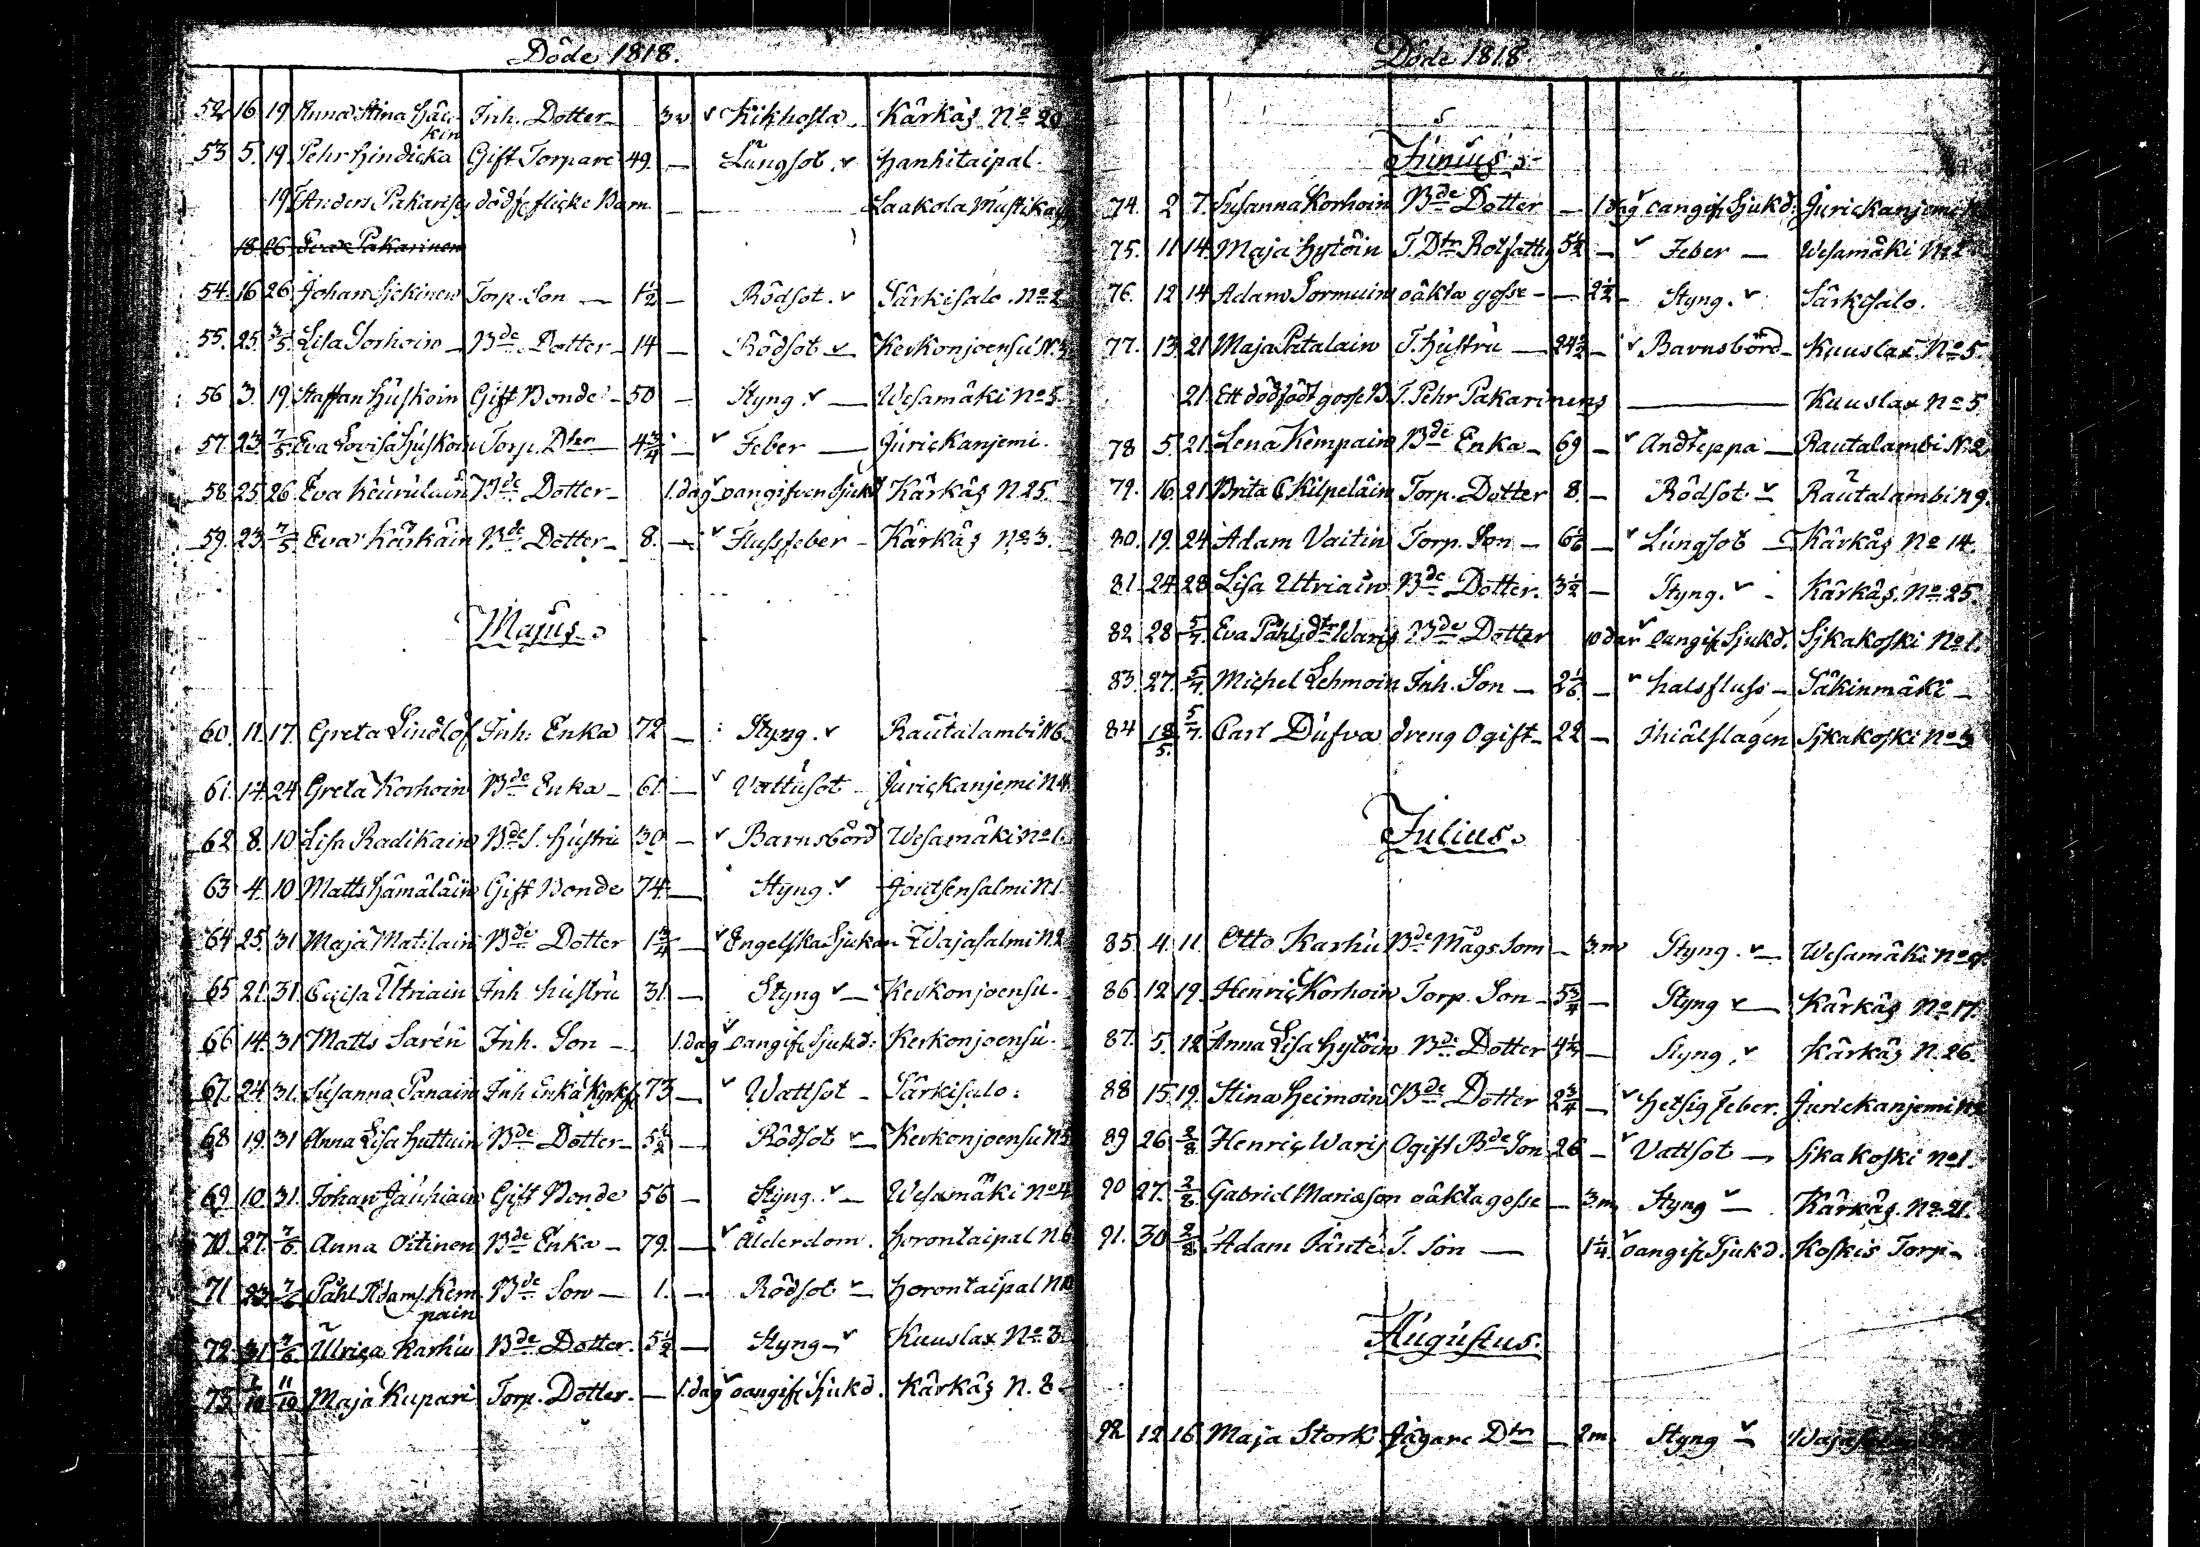 Döde 1818.
52 16 19 Anna Stina Häi- Inh. Dotter 3 v Kikhosta Kärkäs No 20
kin
53 5. 19 Pehr Hindicka Gift Torpare 49. — Lungsot. Hankitaipal.
19 Anders Pakarises dödf. flicke Barn — Laakola Mustika
18 26 Eva Pakarinen
54. 16 26 Johan Sickinen Torp. Son — 1 1/2 — Rödsot. Särkisalo. No 2
55. 25. 3/5 Lisa Korhoin — Bde Dotter 14 — Rödsot — Kerkonjoensu N. 3
56 3. 19. Staffan Huskoin Gift Bonde — 50 — Styng. — Wesamäki No 5.
57. 23. 7/5 Eva Lovisa Huskoin Torp. Dter 4 3/4 — Feber — Jurickanjemi.
58. 25. 26. Eva Keurulain Bde Dotter — 1. dag oangifven Sjukd Kärkäs N. 25.
59. 23. 7/5 Eva Kärkäin Bde Dotter — 8. — Flussfeber — Kärkäs No 3.
Majus.
60. 11. 17. Greta Lindlöf Inh. Enka 72 — Styng. Rautalambi N 6.
61. 14. 24 Greta Korhoin Bde Enka — 61. — Vattusot — Jurickanjemi N 4.
62 8. 10 Lisa Radikain Bde S. Hustru 30 — Barnsbörd Wesamäki No 1.
63 4. 10 Matts Hämäläin Gift Bonde 74. — Styng. Joutsensalmi N 1.
64 25. 31 Maja Matilain Bde Dotter 1 3/4 — Engelska Sjukan Wajasalmi N. 2
65 21. 31. Cecisa Utriain Inh Hustru 31. — Styng — Kerkonjoensu.
66 14. 31 Matts Sarén Inh. Son — 1. dag oangif. Sjukd. Kerkonjoensu.
67. 24 31. Susanna Panain Inh Enka Kyrkf. 73 — Wattsot — Särkisalo.
68 19. 31 Anna Lisa Huttuin Bde Dotter — 5 1/2 — Rödsot — Kerkonjoensu N 5
69 10. 31. Johan Jauhiain Gift Bonde 56 — Styng. — Wesamäki No 4
70. 27. 7/6 Anna Oitinen Bde Enka — 79. — Ålderdom. Horontaipal N. 6
71 23. 7/6 Påhl Adams. Kem Bde Son — 1. — Rödsot — Horontaipal N 10
pain
72. 31 7/6. Ulrica Karhu Bde Dotter. 5 1/2 — Styng — Kuuslax No 3.
73. 1/10 11/10 Maja Kupari Torp. Dotter. — 1. dag oangif. Sjukd. Kärkäs N. 8.
Döde 1818.
Junius.
74. 2 7. Susanna Korhoin Bde Dotter — 1 dag oangif. Sjukd. Jurickanjemi
75. 11 14. Maja Hytöin T. Dtr Rotfattig 5 1/2 — Feber — Wesamäki No 2
76. 12 14 Adam Tormuin oäkta gosse — 2 1/2 — Styng. Särkisalo.
77. 13. 21 Maja Patalain T. Hustru — 24 1/2 — Barnsbörd — Kuuslax No 5.
21. Ett dödfödt gosse B. T. Pehr Pakarinens — Kuuslax No 5
78 5. 21. Lena Kempain Bde Enka — 69 — Andteppa — Rautalambi N. 2
79. 16. 21 Brita C. Kilpeläin Torp. Dotter 8. — Rödsot — Rautalambi N 9.
80. 19. 24 Adam Vaitin Torp. Son — 6 1/6 — Lungsot — Kärkäs No 14.
81. 24 28 Lisa Utriain Bde Dotter. 3 1/2 — Styng. — Kärkäs. No 25.
82 28 5/7 Eva Påhls dtr Waris Bde Dotter 10 dar oangif. Sjukd. Sjkakoski No 1.
83. 27. 5/7 Michel Lehmoin Inh. Son — 2 1/6 — halsfluss — Säkinmäki —
84 18/5. 5/7. Carl Dufva dreng Ogift — 22 — Ihiälslagen Sjkakoski No 3
Julius.
85. 4. 11. Otto Karhu Bde Mågs Son — 3. m Styng. — Wesamäki No 9
86 12 19. Henric Korhoin Torp. Son — 5 3/4 — Styng — Kärkäs No 17.
87. 5. 12 Anna Lisa Hytöin Bde Dotter 4 1/2 — Styng, Kärkäs N. 26.
88 15 19. Stina Heimoin Bde Dotter 2 3/4 — Hetsig Feber. Jurickanjemi
89 26 2/8 Henric Waris Ogift Bde Son 26 — Vattsot — Sjkakoski No 1.
90 27. 2/8 Gabriel Mariason oäkta gosse — 3 m. Styng — Kärkäs. No 21.
91. 30 2/8 Adam Jänte. T. Son — 1 1/4 oangif. Sjukd. Koskis Torp.
Augustus.
92 12 16 Maja Stork Jägare Dtr — 2 m. Styng —